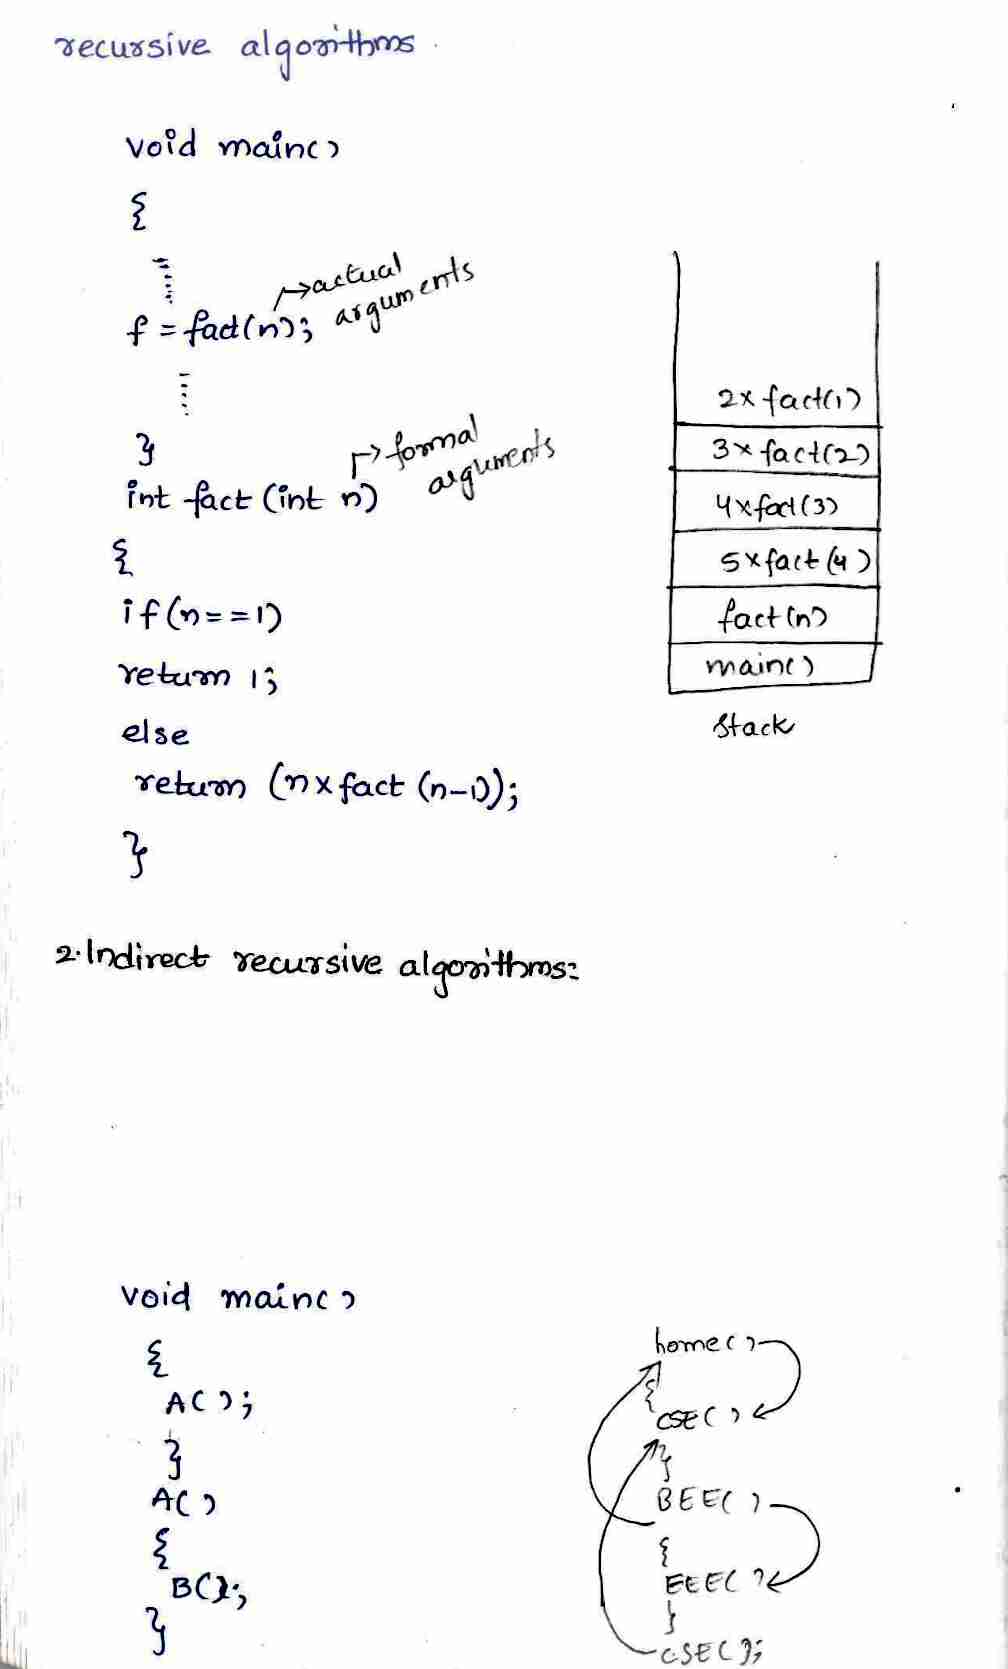 recursive algorithms.
void main()
{
f = fact(n);
→actual
arguments
}
int fact (int n)
→formal
arguments
{
if(n==1)
return 1;
else
return (n×fact (n-1));
}
2× fact(1)
3× fact(2)
4×fact(3)
5×fact(4)
fact(n)
main()
Stack
2.Indirect recursive algorithms:
void main()
{
A();
}
A()
{
B();
}
home()
{
CSE()
}
BEE()
{
EEE()
}
CSE();